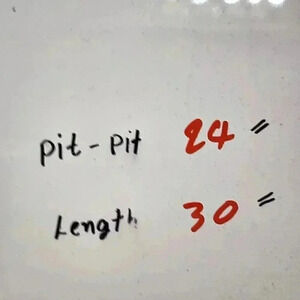 pit - pit 24 "
Length 30 "